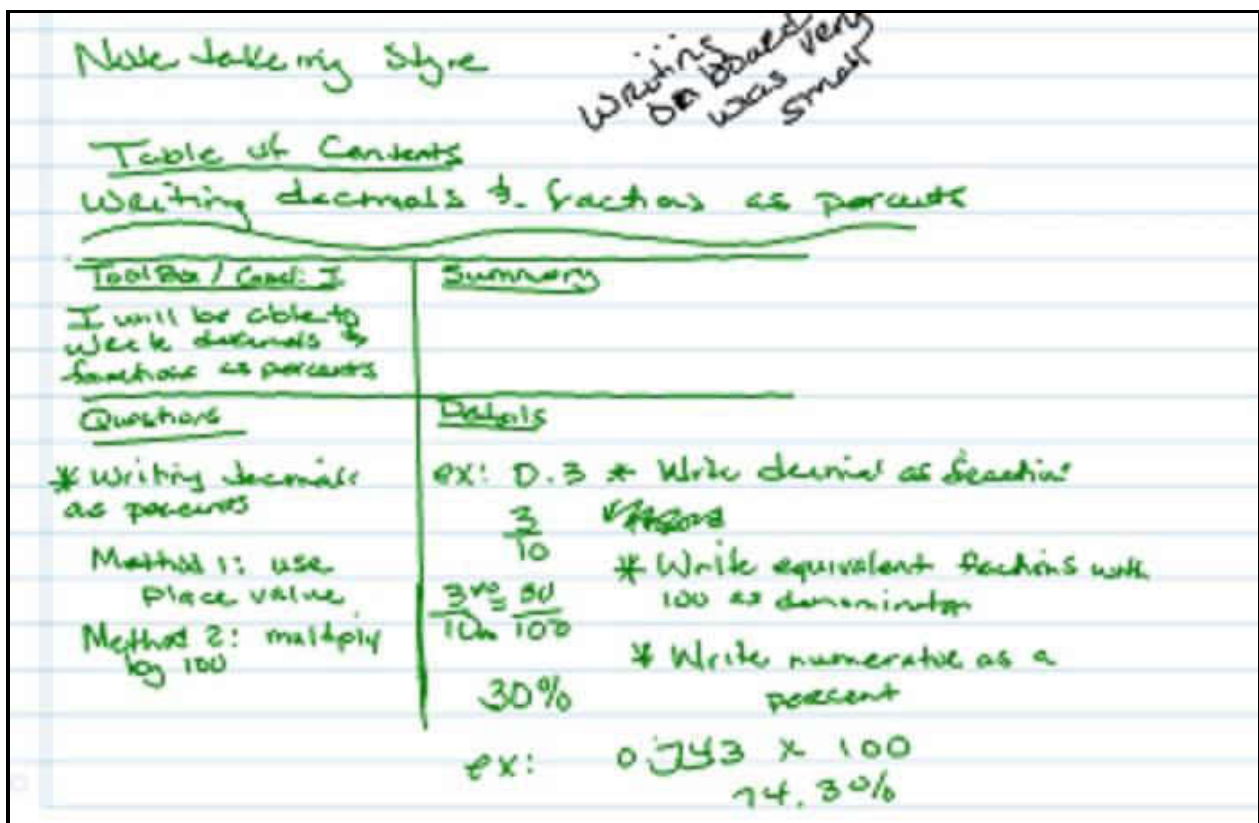 Note taking Style
Writing
on board
was very
small
Table of Contents
Writing decimals & fractions as percents
ToolBox /
Summary
I will be able to
write decimals &
fractions as percents
Questions
Details
* Writing decimals
as percents
Method 1: use
place value
Method 2: multiply
by 100
ex: 0.3 * Write decimal as fraction
3
10
* Write equivalent fractions with
100 as denominator
3 = 30
10 100
* Write numerator as a
percent
30%
ex: 0.743 x 100
74.3%